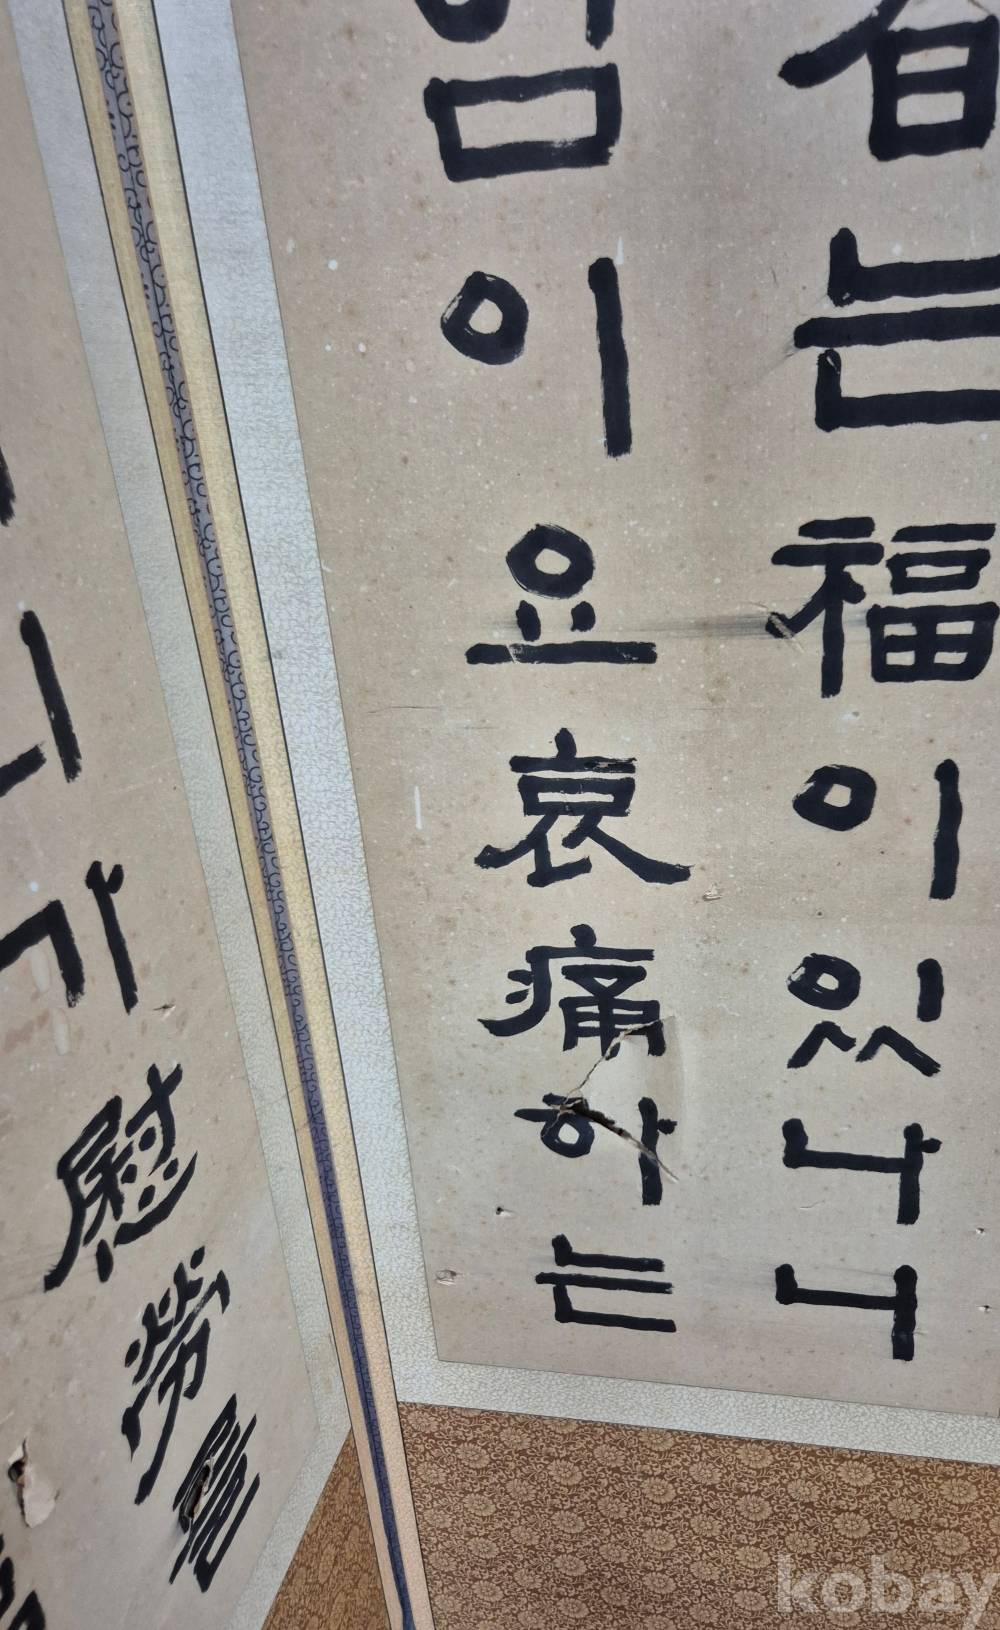 者는福이있나니
임이요哀痛하는
가慰勞를